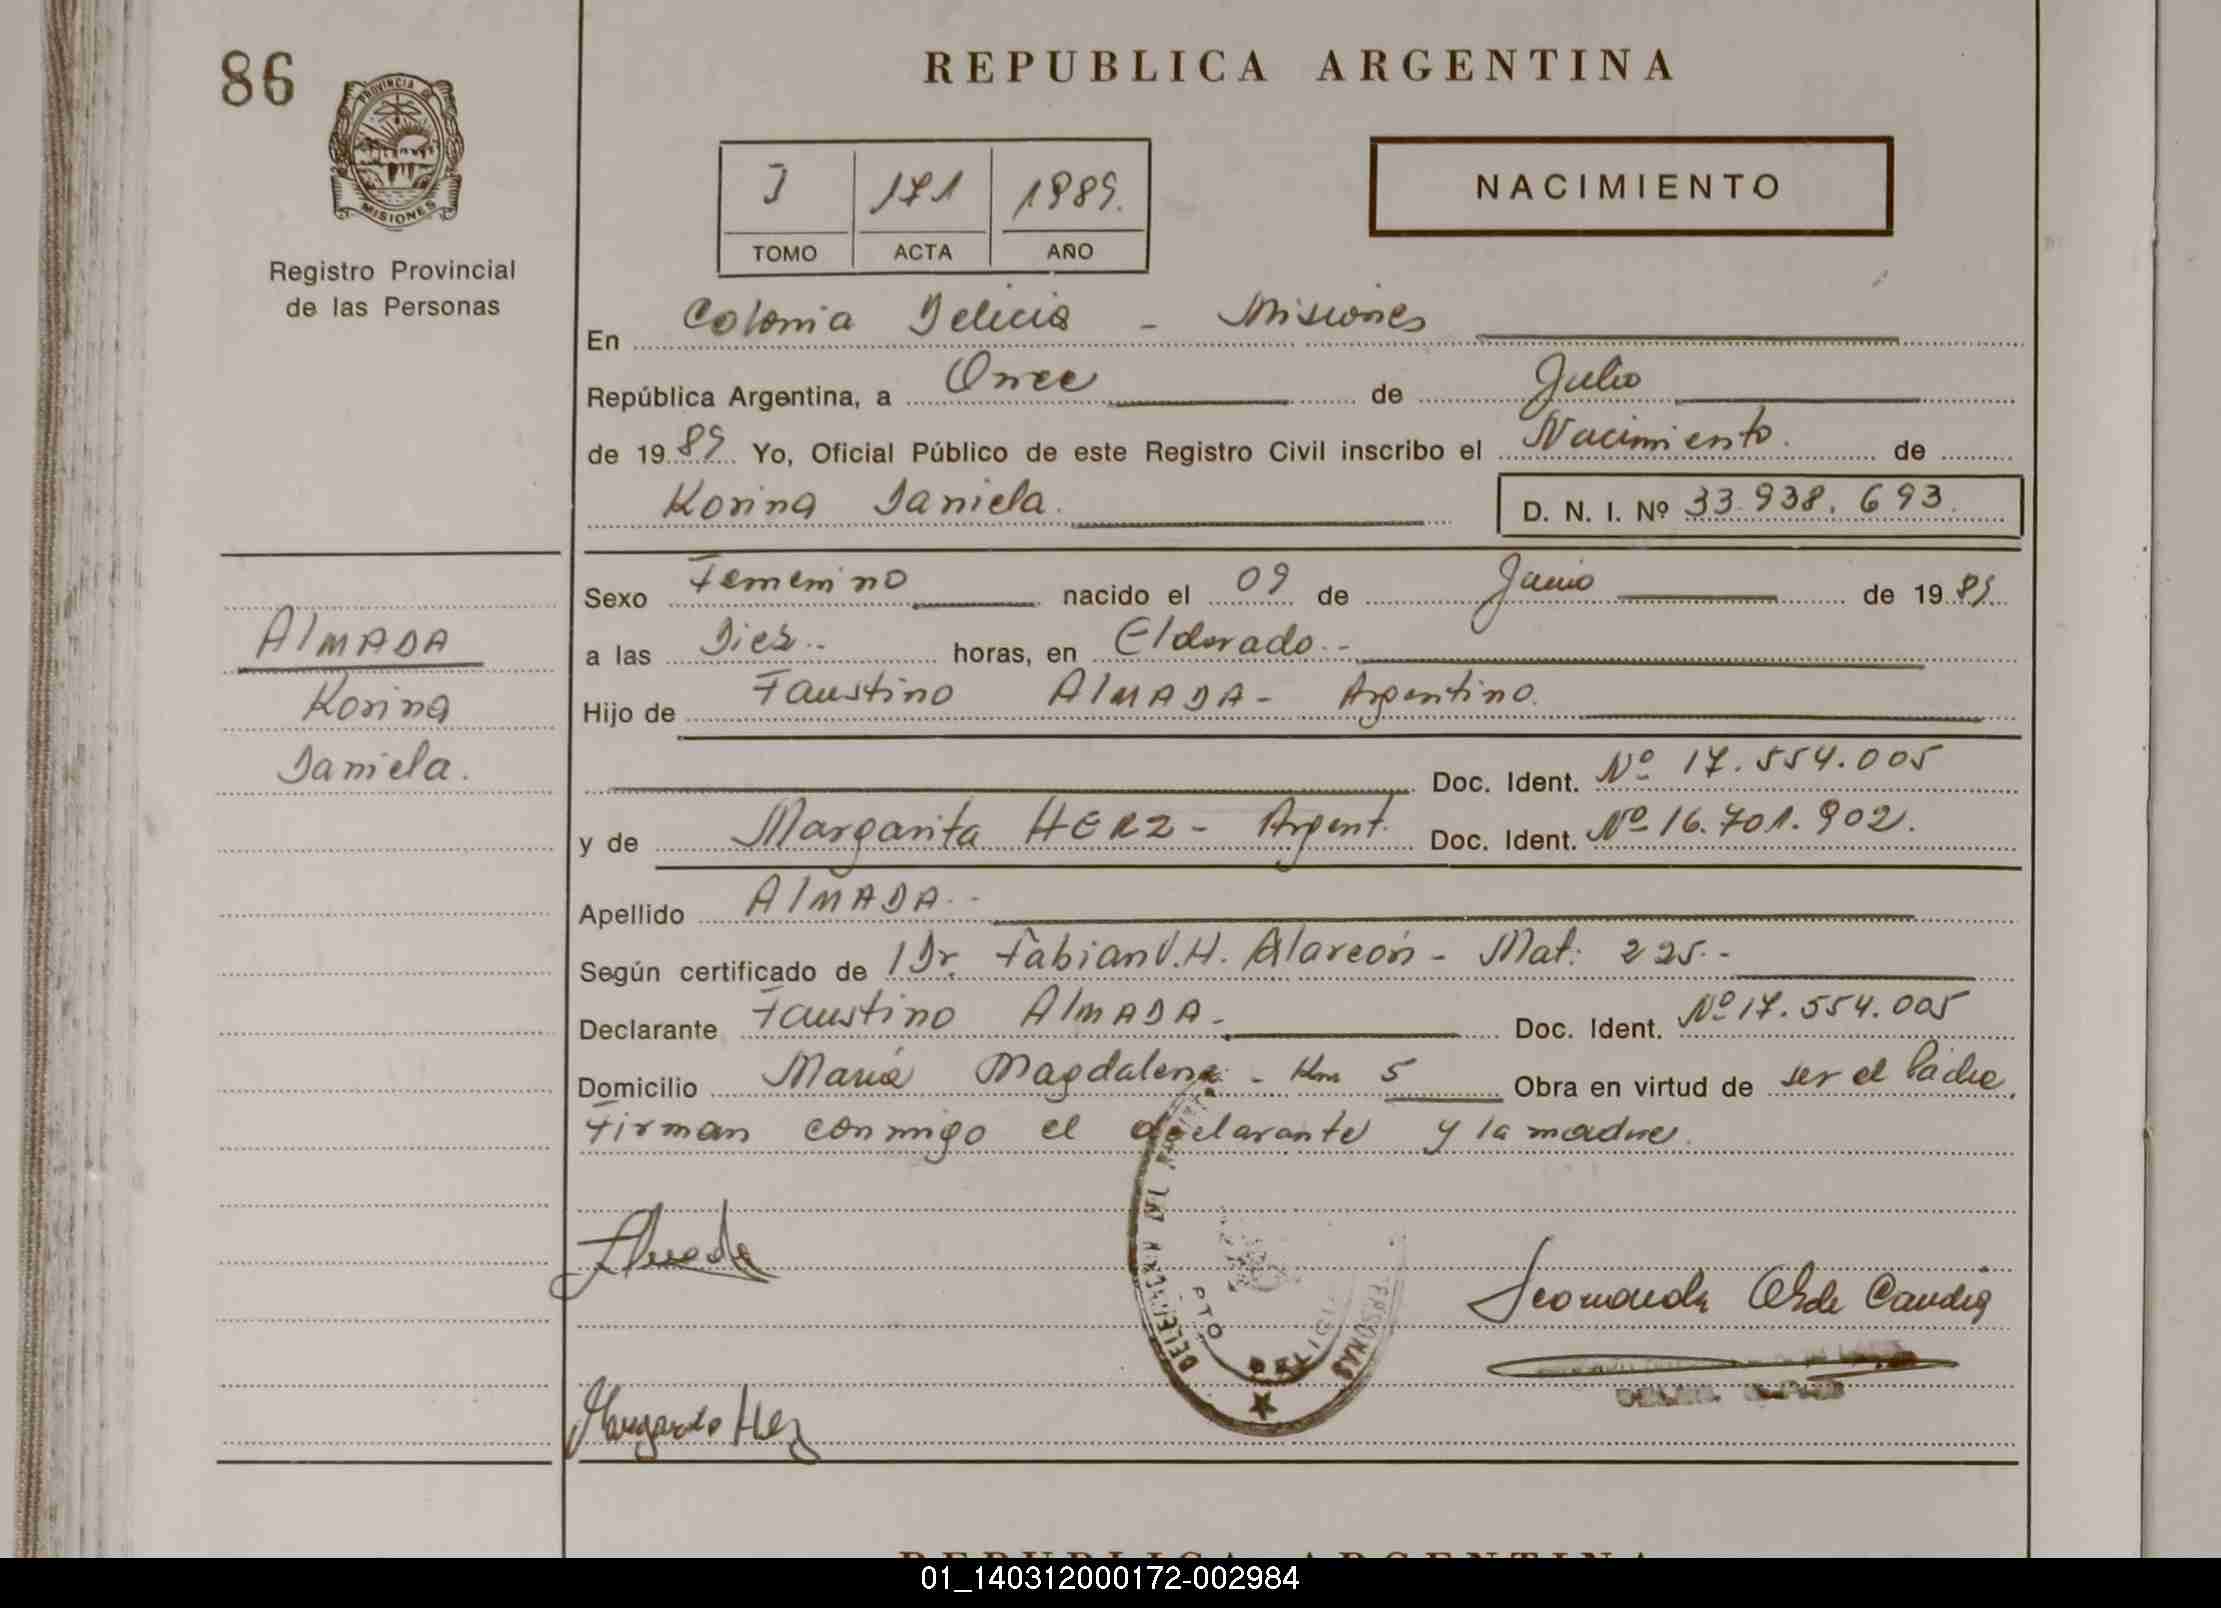 86
REPUBLICA ARGENTINA
PROVINCIA DE
MISIONES
Registro Provincial
de las Personas
I 171 1989.
TOMO ACTA AÑO
NACIMIENTO
En Colonia Delicia - Misiones
República Argentina, a Once de Julio
de 1989 Yo, Oficial Público de este Registro Civil inscribo el Nacimiento. de
Korina Daniela. D. N. I. Nº 33.938.693.
ALMADA
Korina
Daniela.
Sexo Femenino nacido el 09 de Junio de 1989
a las Diez.. horas, en Eldorado.-
Hijo de Faustino ALMADA - Argentino.
Doc. Ident. Nº 17.554.005
y de Margarita HERZ - Argent. Doc. Ident. Nº 16.701.902.
Apellido ALMADA.-
Según certificado de Dr. Fabian V.H. Alarcón - Mat: 225.-
Declarante Faustino ALMADA.- Doc. Ident. Nº 17.554.005
Domicilio María Magdalena - Km 5 Obra en virtud de ser el Padre.
Firman conmigo el declarante y la madre.
Almada
Margarita Herz
PERSONAS
DTO
★
REPUBLICA ARGENTINA
01_140312000172-002984